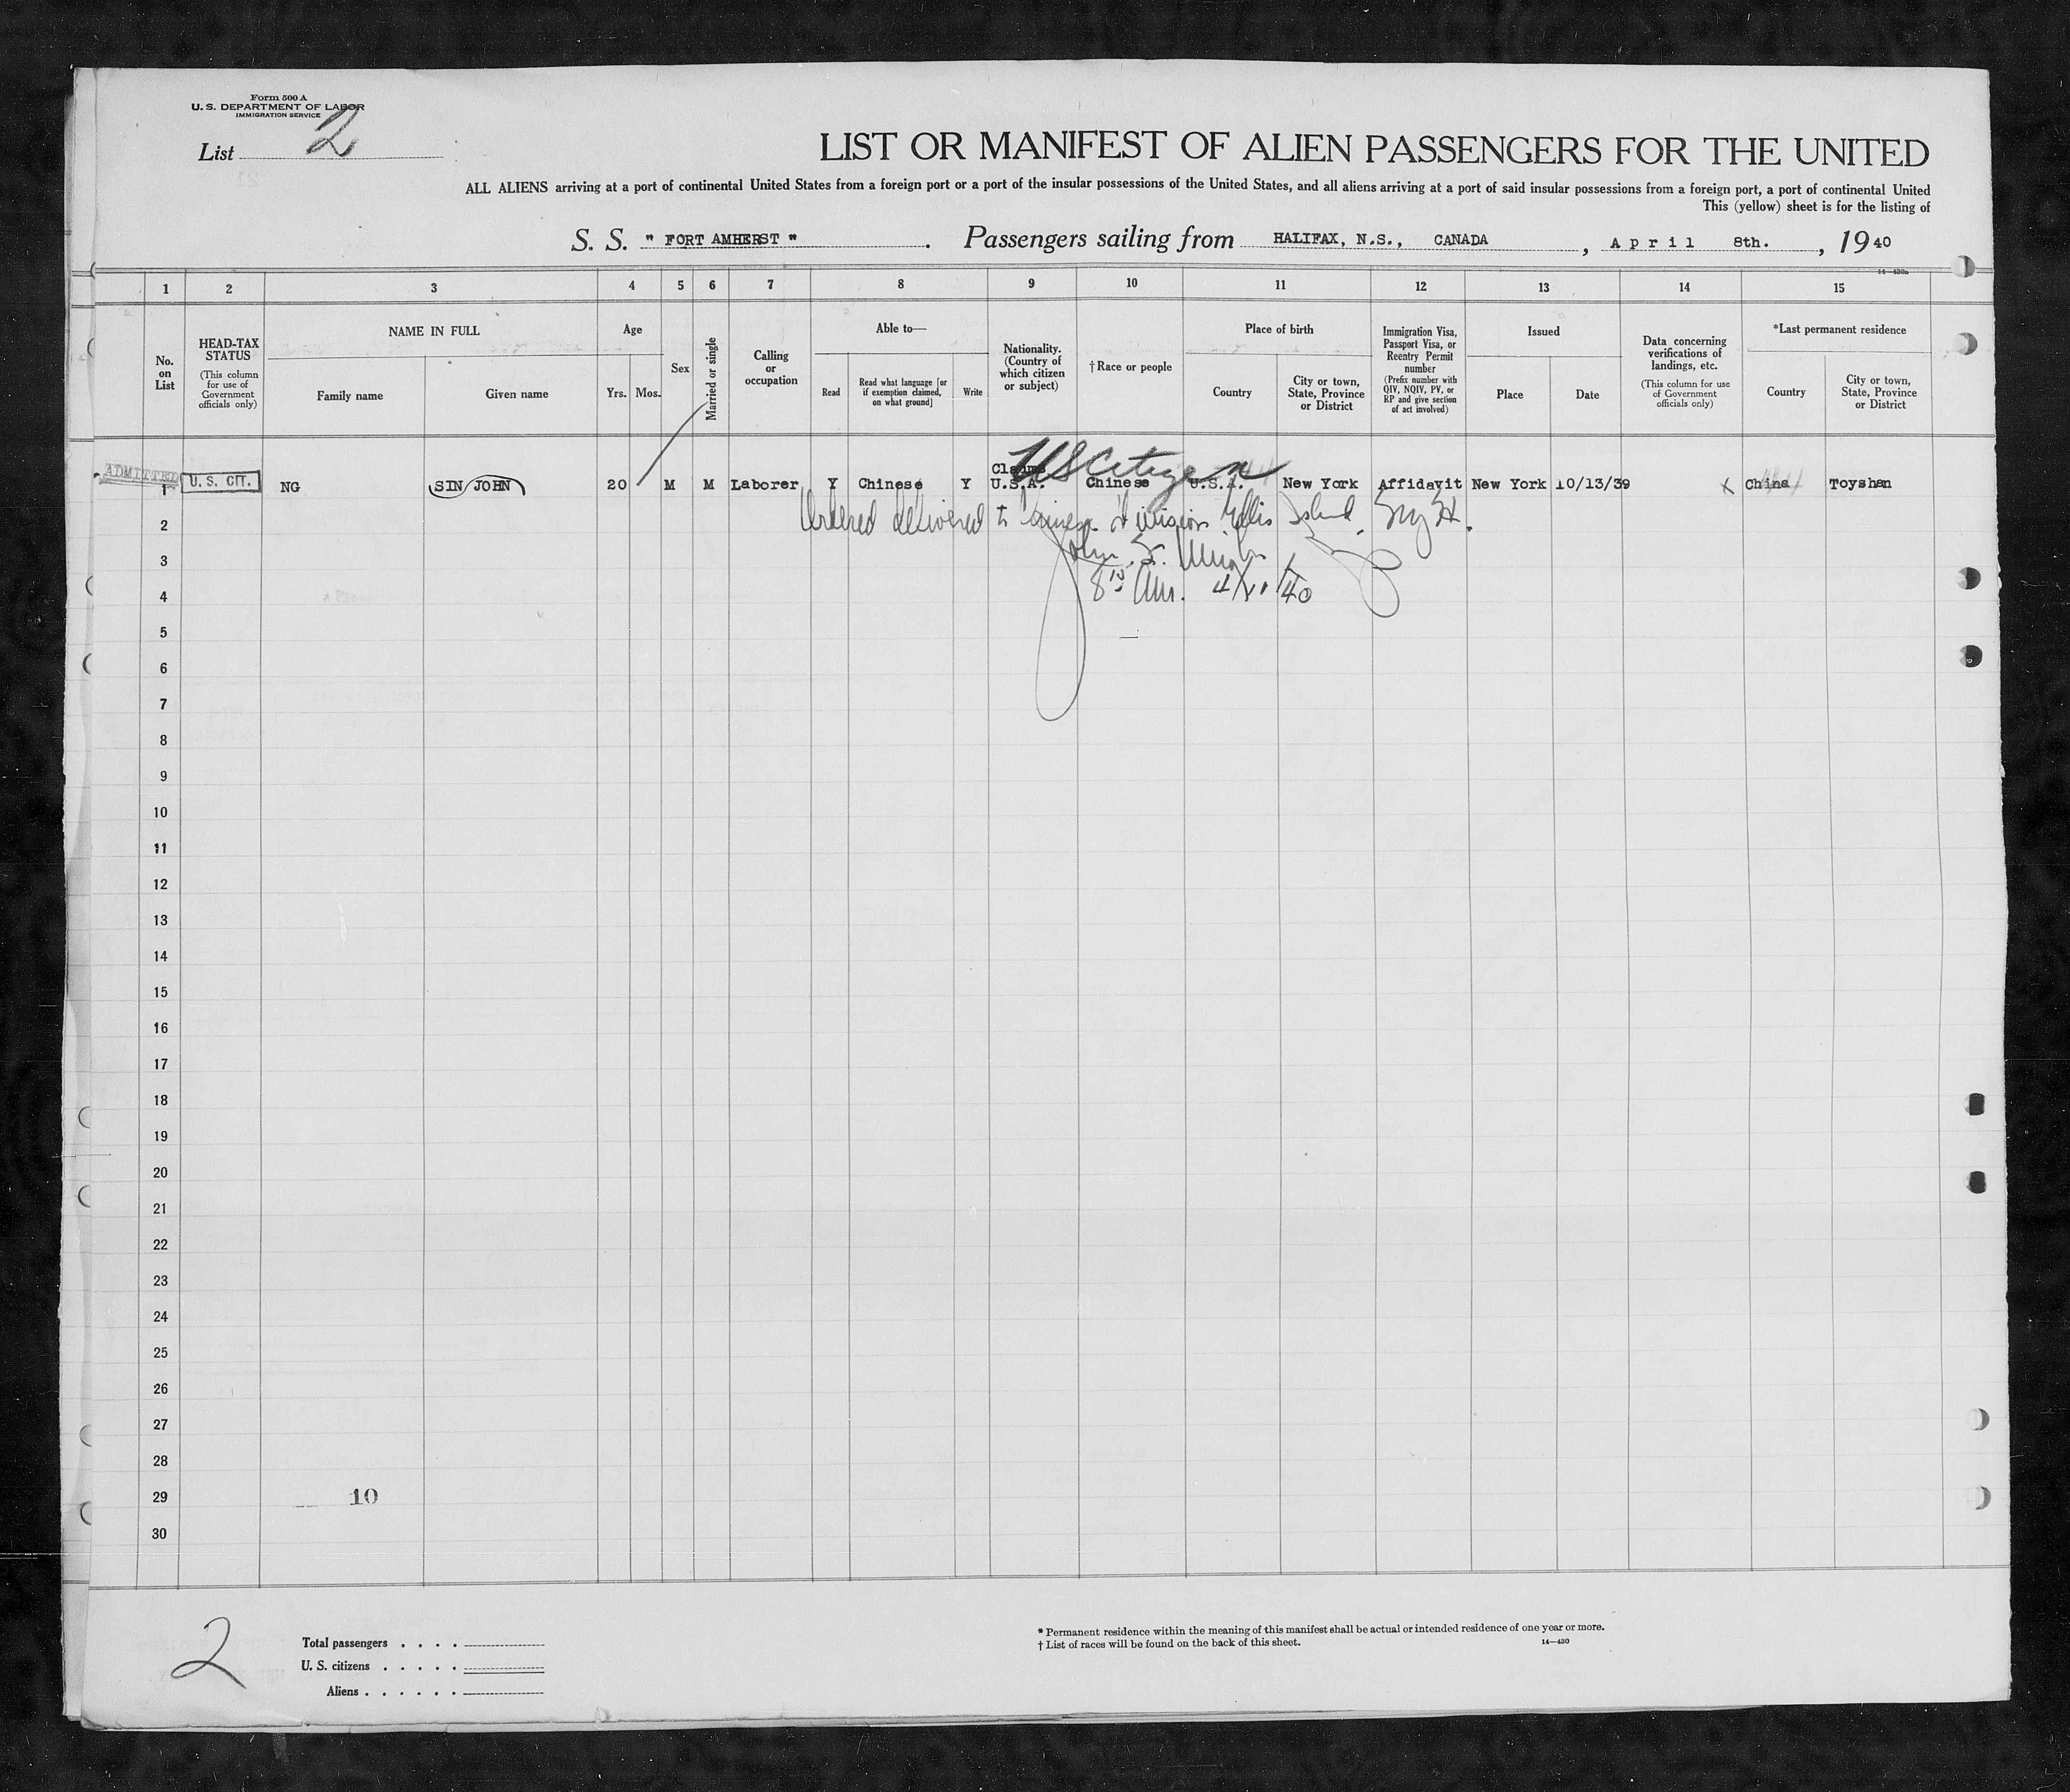 Form 500 A
U. S. DEPARTMENT OF LABOR
IMMIGRATION SERVICE
List 2
LIST OR MANIFEST OF ALIEN PASSENGERS FOR THE UNITED
ALL ALIENS arriving at a port of continental United States from a foreign port or a port of the insular possessions of the United States, and all aliens arriving at a port of said insular possessions from a foreign port, a port of continental United
This (yellow) sheet is for the listing of
S. S. " FORT AMHERST " . Passengers sailing from HALIFAX, N.S., CANADA , April 8th. , 19 40
14—430a
1 2 3 4 5 6 7 8 9 10 11 12 13 14 15
No. on List
HEAD-TAX STATUS (This column for use of Government officials only)
NAME IN FULL
Family name Given name
Age
Yrs. Mos.
Sex
Married or single
Calling or occupation
Able to—
Read Read what language [or if exemption claimed, on what ground] Write
Nationality. (Country of which citizen or subject)
† Race or people
Place of birth
Country City or town, State, Province or District
Immigration Visa, Passport Visa, or Reentry Permit number (Prefix number with QIV, NQIV, PV, or RP and give section of act involved)
Issued
Place Date
Data concerning verifications of landings, etc. (This column for use of Government officials only)
*Last permanent residence
Country City or town, State, Province or District
US Citizen
ADMITTED
Claims
1 U. S. CIT. NG SIN JOHN 20 M M Laborer Y Chinese Y U.S.A. Chinese U.S.A. New York Affidavit New York 10/13/39 x China Toyshan
Ordered delivered to Chinese division Ellis Island,
2
3
4
5
6
7
8
9
10
11
12
13
14
15
16
17
18
19
20
21
22
23
24
25
26
27
28
29 10
30
2
Total passengers . . . .
U. S. citizens . . . . .
Aliens . . . . . .
* Permanent residence within the meaning of this manifest shall be actual or intended residence of one year or more.
† List of races will be found on the back of this sheet.
14—430